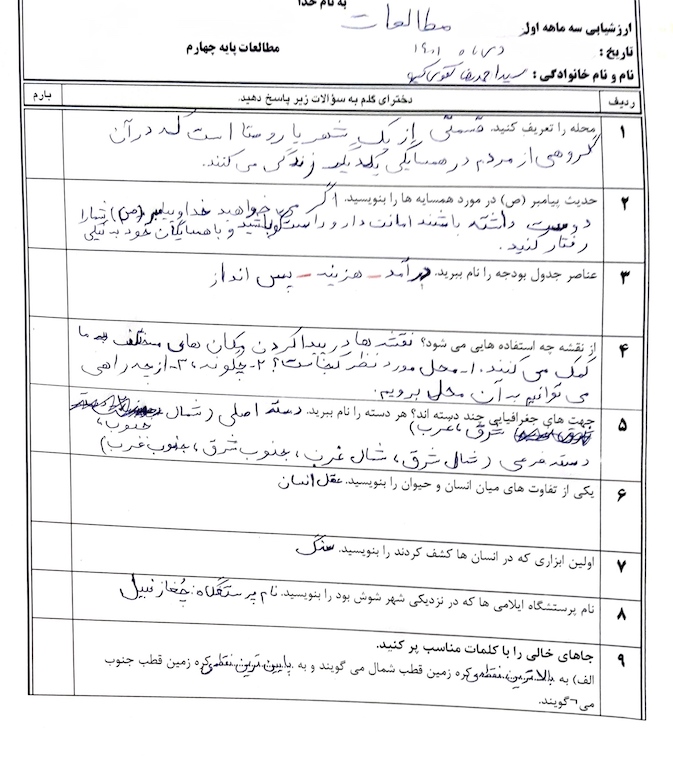 به نام خدا
ارزشیابی سه ماهه اول مطالعات
تاریخ : دی ماه ۱۴۰۱ مطالعات پایه چهارم
نام و نام خانوادگی : سید احمدرضا تقوی
ردیف دخترای گلم به سؤالات زیر پاسخ دهید. بارم
۱ محله را تعریف کنید. قسمتی از یک شهر یا روستا است که در آن
گروهی از مردم در همسایگی یکدیگر زندگی می کنند.
۲ حدیث پیامبر (ص) در مورد همسایه ها را بنویسید. اگر می خواهید خدا و پیامبر (ص) شما را
دوست داشته باشند امانت دار و راستگو باشید و با همسایگان خود به نیکی
رفتار کنید.
۳ عناصر جدول بودجه را نام ببرید. درآمد - هزینه - پس انداز
۴ از نقشه چه استفاده هایی می شود؟ نقشه ها در پیدا کردن مکان های مختلف به ما
کمک می کنند. ۱- محل مورد نظر کجاست؟ ۲- چگونه، ۳- از چه راهی
می توانیم به آن محل برویم.
۵ جهت های جغرافیایی چند دسته اند؟ هر دسته را نام ببرید. دسته اصلی (شمال
جنوب، شرق، غرب)
دسته فرعی (شمال شرق، شمال غرب، جنوب شرق، جنوب غرب)
۶ یکی از تفاوت های میان انسان و حیوان را بنویسید. عقل انسان
۷ اولین ابزاری که در انسان ها کشف کردند را بنویسید. سنگ
۸ نام پرستشگاه ایلامی ها که در نزدیکی شهر شوش بود را بنویسید. نام پرستگاه: چُغازنبیل
۹ جاهای خالی را با کلمات مناسب پر کنید.
الف) به بالاترین نقطه ی کره زمین قطب شمال می گویند و به پایین ترین نقطه ی کره زمین قطب جنوب
می¬گویند.